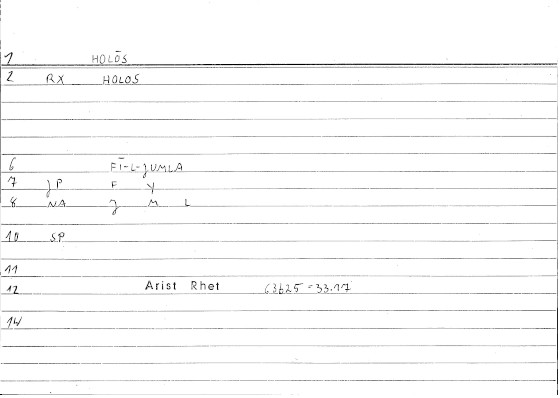 1 HOLŌS
2 RX HOLOS
6 FĪ-L-JUMLA
7 JP F Y
8 NA J M L
10 SP
11
12 Arist Rhet 63b25 = 33.17
14